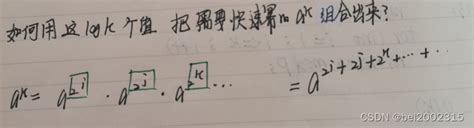 如何用这 logk 个值 把需要快速幂的 aᵏ 组合出来?
aᵏ = a^2^i · a^2^j · a^2^k ··· = a^2^i + 2^j + 2^k + ··· + ··
CSDN @bei2002315